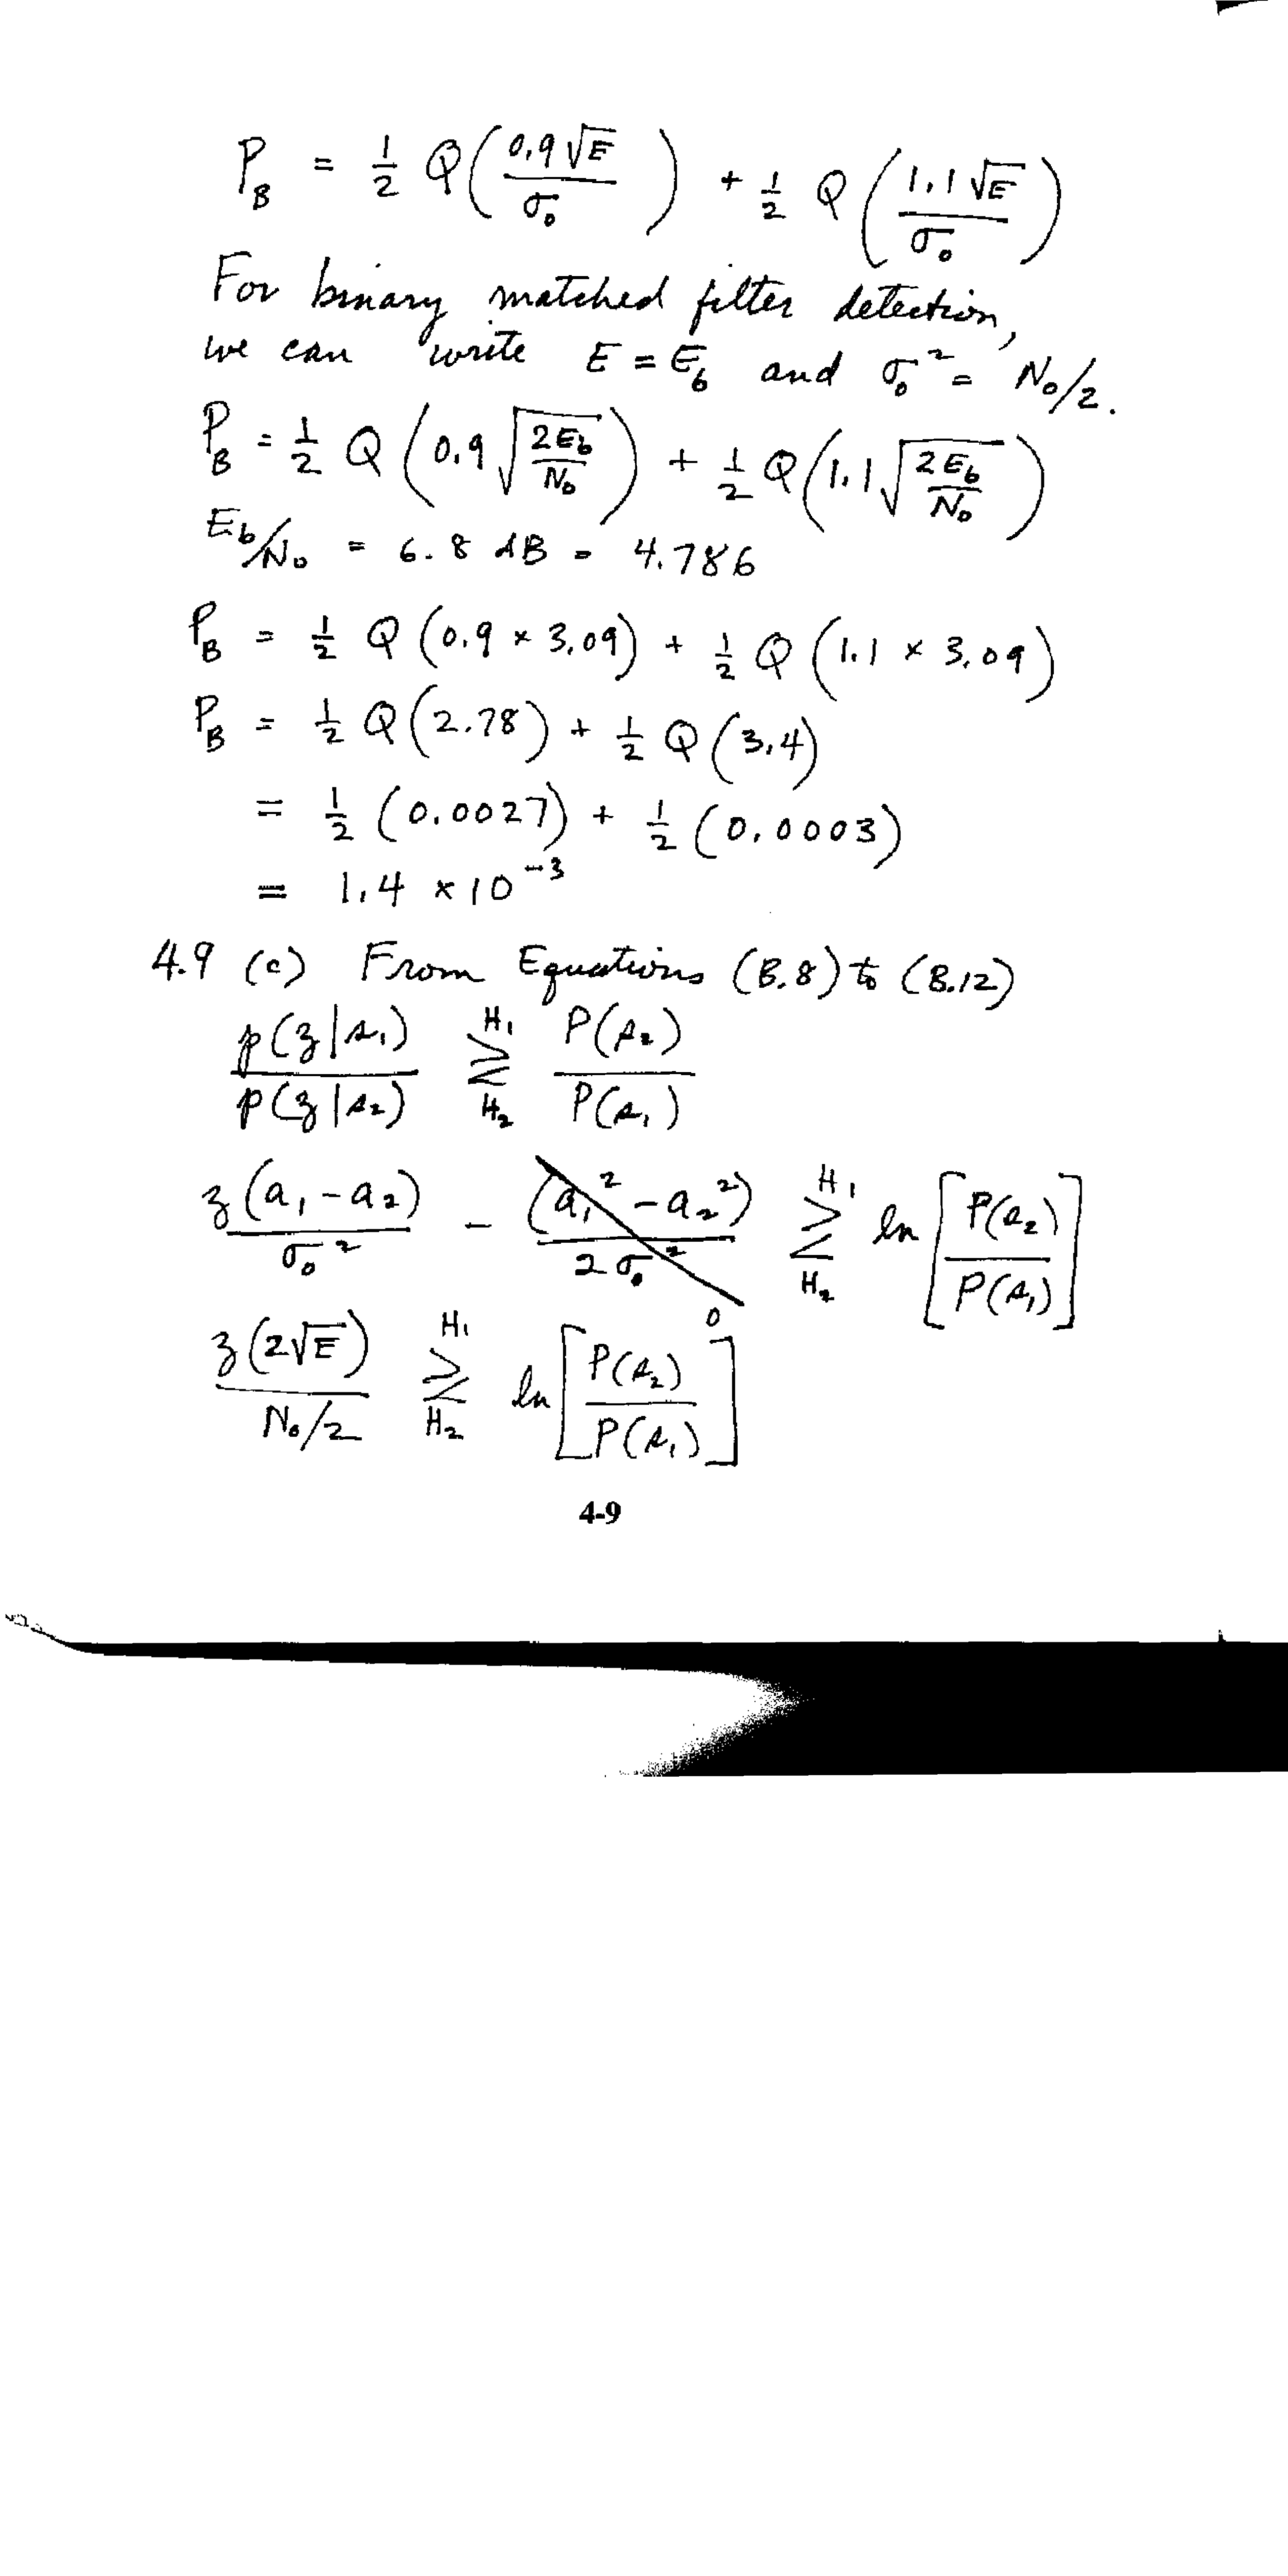 P_B = 1/2 Q(0.9√E / σ₀) + 1/2 Q(1.1√E / σ₀)
For binary matched filter detection,
we can write E = E_b and σ₀² = N₀/2.
P_B = 1/2 Q(0.9 √(2E_b/N₀)) + 1/2 Q(1.1 √(2E_b/N₀))
E_b/N₀ = 6.8 dB = 4.786
P_B = 1/2 Q(0.9 × 3.09) + 1/2 Q(1.1 × 3.09)
P_B = 1/2 Q(2.78) + 1/2 Q(3.4)
= 1/2 (0.0027) + 1/2 (0.0003)
= 1.4 × 10⁻³
4.9 (c) From Equations (B.8) to (B.12)
p(z|s₁) / p(z|s₂) ≷ H₁ H₂ P(s₂) / P(s₁)
z(a₁ - a₂) / σ₀² - (a₁² - a₂²) / 2σ₀² 0 ≷ H₁ H₂ ln [P(s₂) / P(s₁)]
z(2√E) / N₀/2 ≷ H₁ H₂ ln [P(s₂) / P(s₁)]
4-9